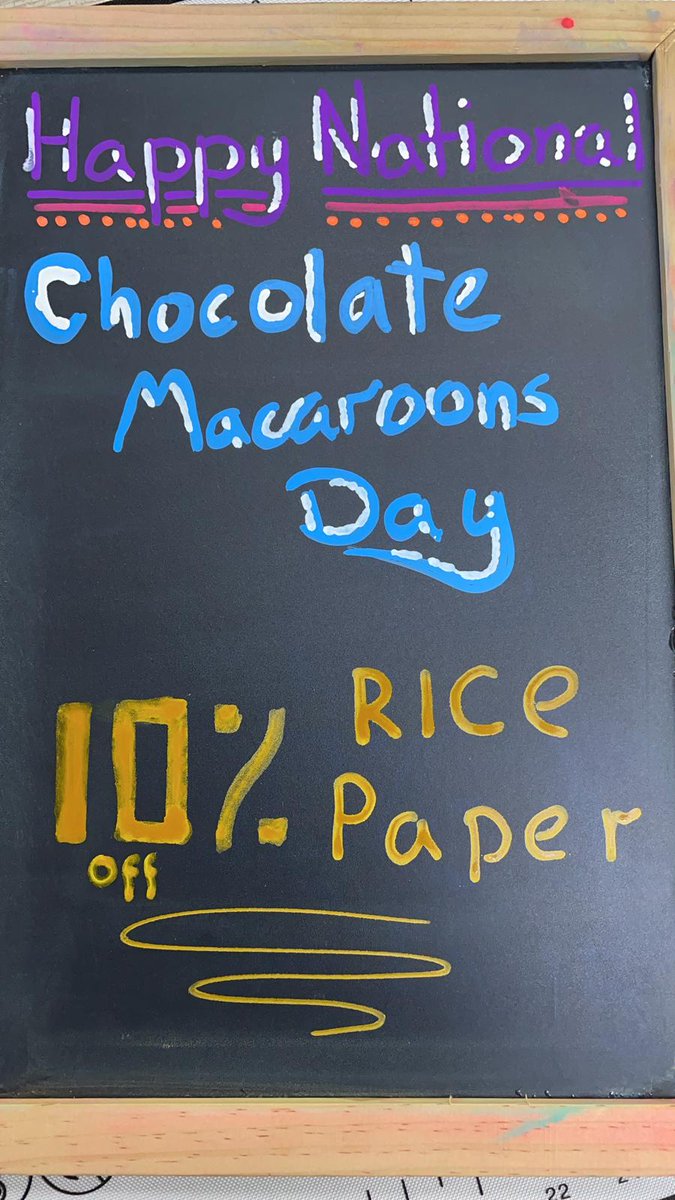 Happy National
Chocolate
Macaroons
Day
10% Rice
off Paper
22